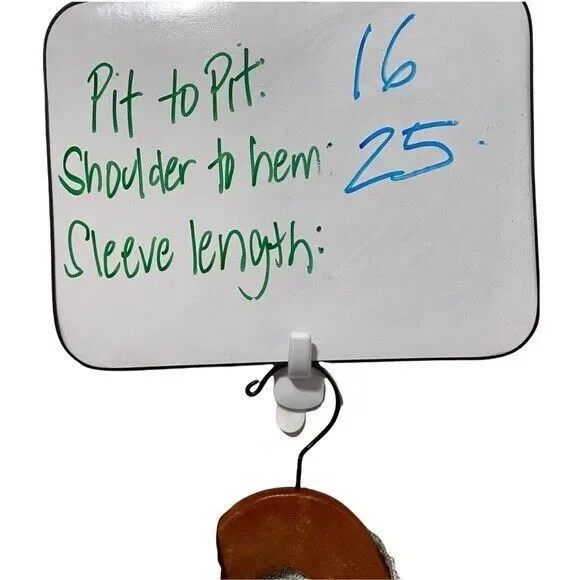 Pit to Pit: 16
Shoulder to hem: 25
Sleeve length: